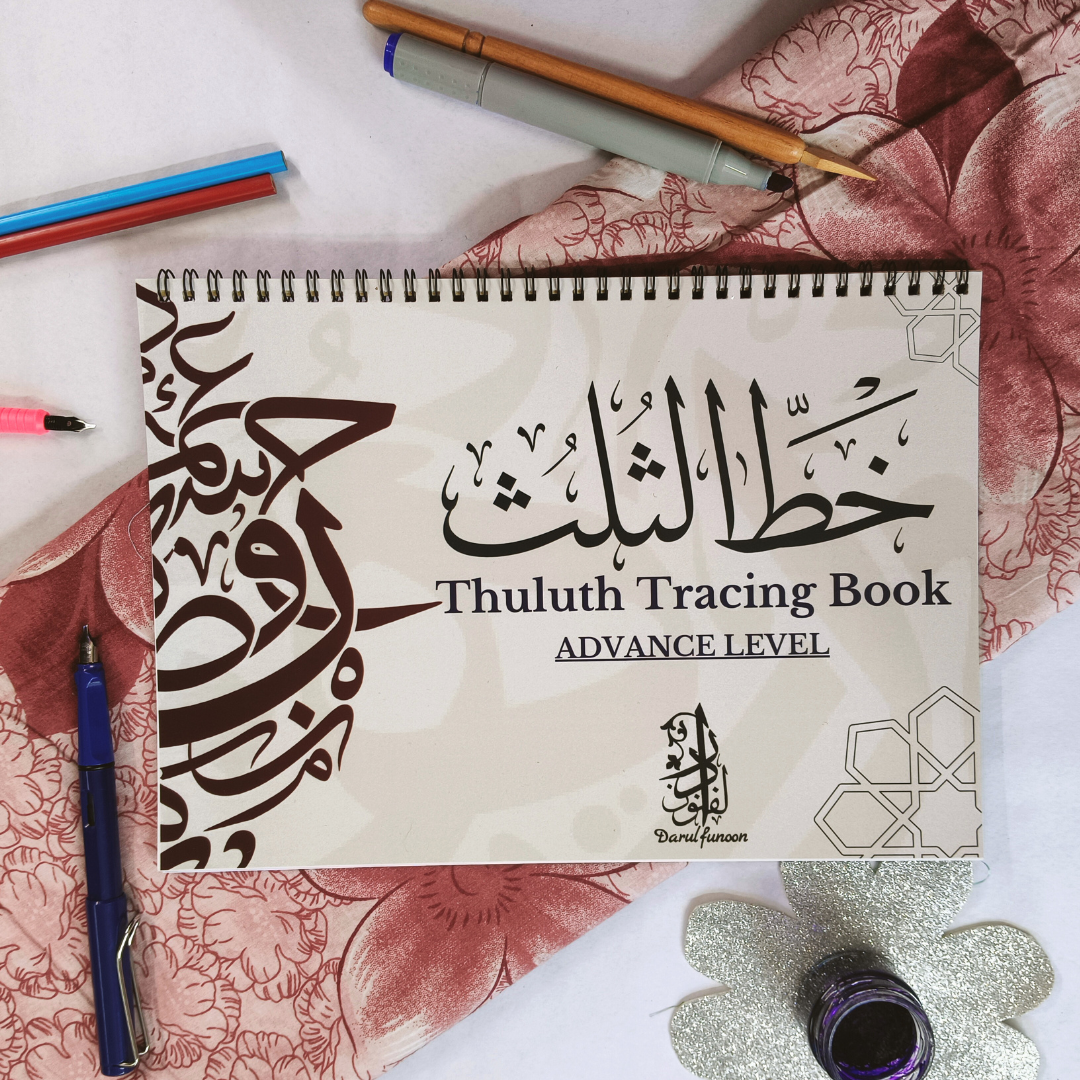 خَطّ الثلث
Thuluth Tracing Book
ADVANCE LEVEL
دار الفنون
Darul funoon